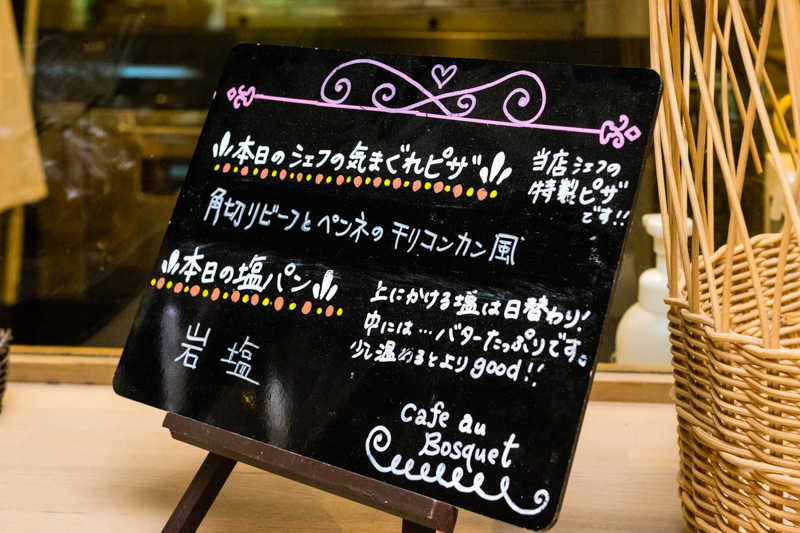 本日のシェフの気まぐれピザ
当店シェフの
特製ピザ
です!!
角切りビーフとペンネのチリコンカン風
本日の塩パン
岩塩
上にかける塩は日替わり!
中には…バターたっぷりです。
少し温めるとよりgood!!
Cafe au
Bosquet